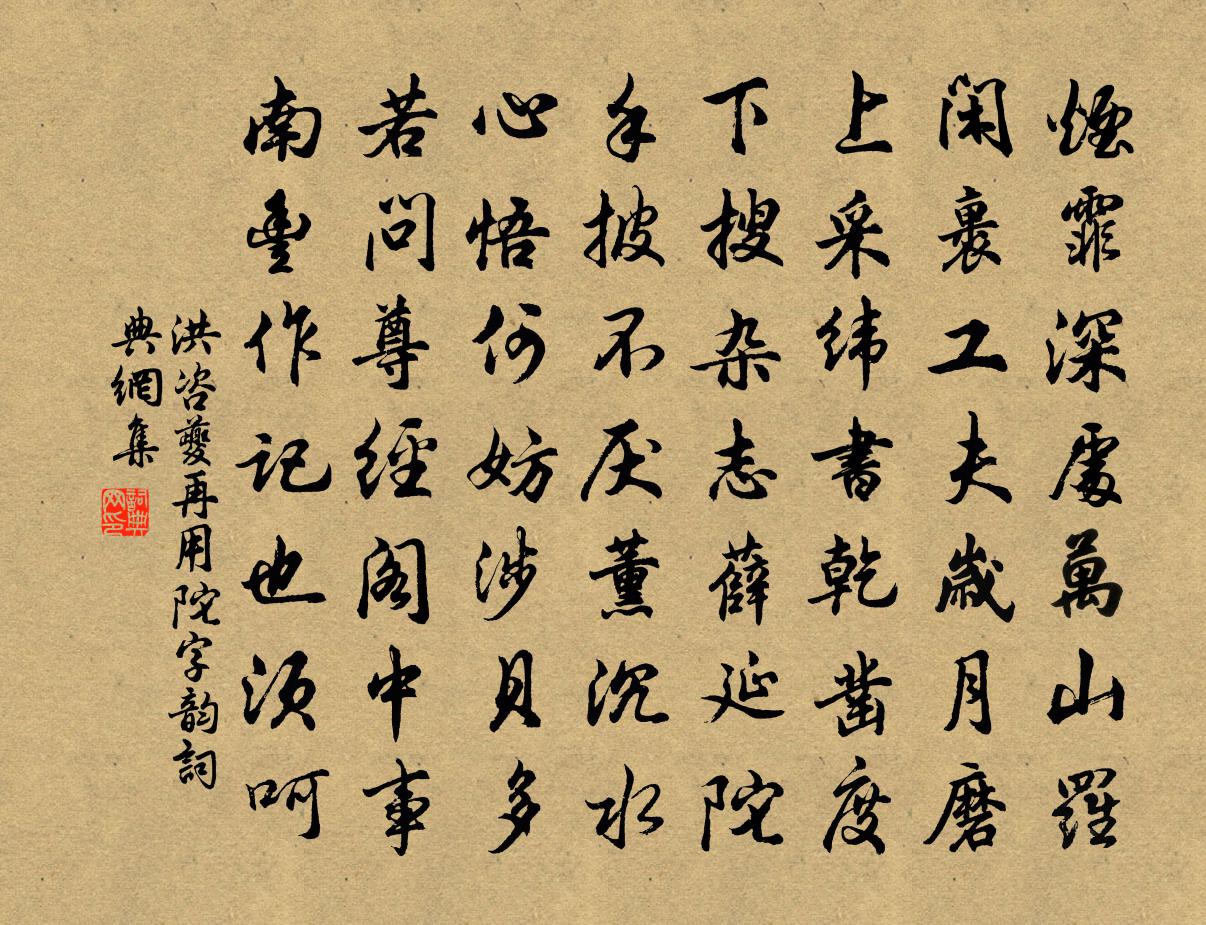 煙霏深處萬山羅
閑裏工夫歲月磨
上采緯書乾鑿度
下搜杂志薛延陀
手披不厌薰沉水
心悟何妨涉貝多
若問尊經阁中事
南豐作記也須呵
洪咨夔再用陀字韵詞
典網集
詞典网印